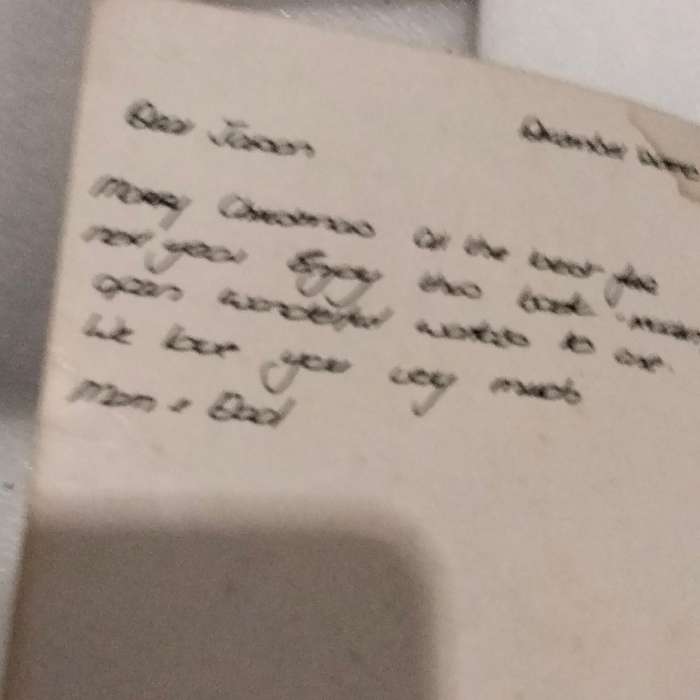 Dear Jason
December
Merry Christmas all the best for
new year. Enjoy this book
open wonderful worlds to
We love you very much
Mom + Dad